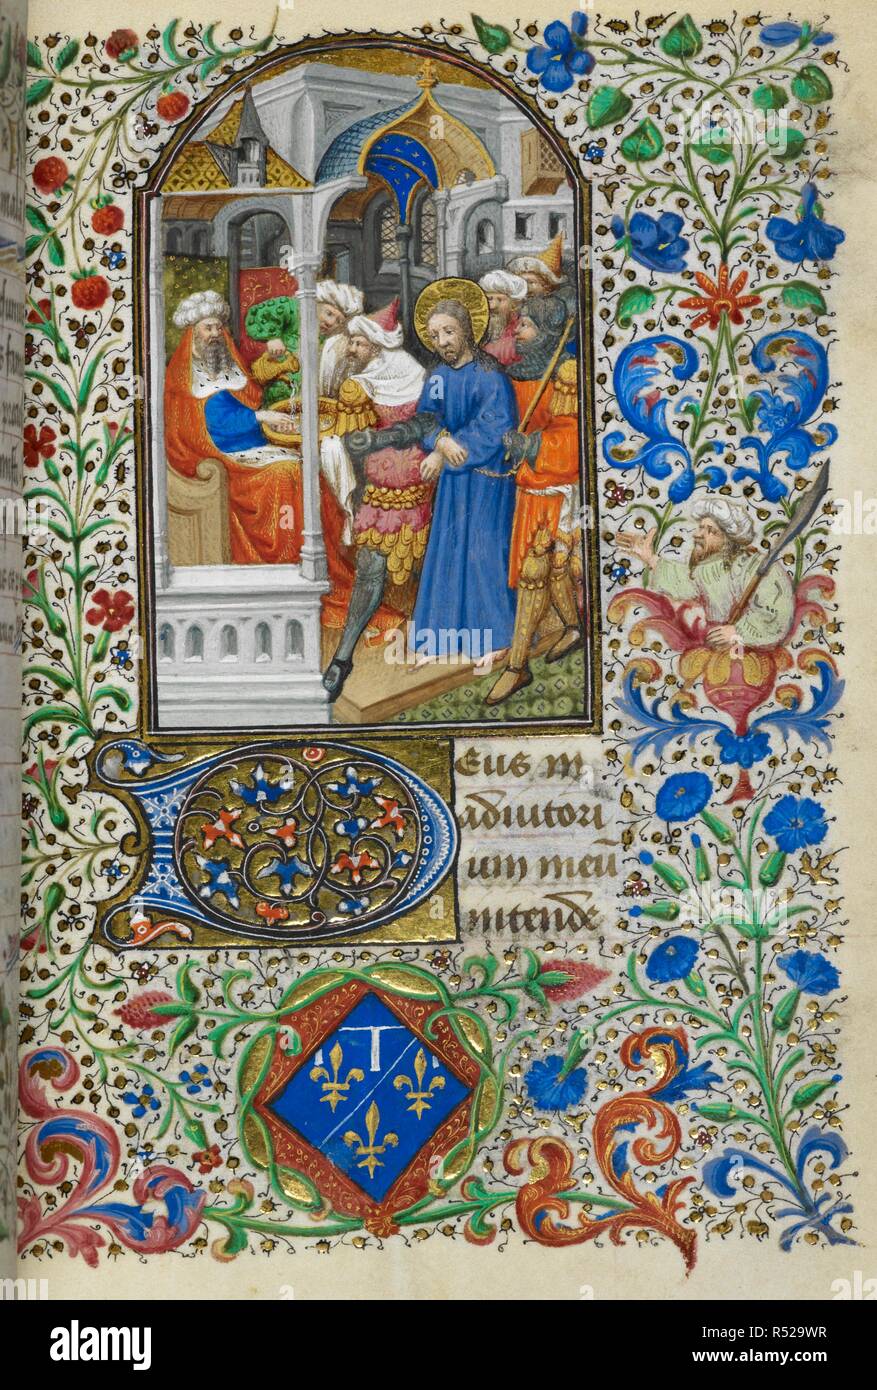 Deus in
adiutori
um meū
intende
a
alamy
Image ID: R529WR
www.alamy.com